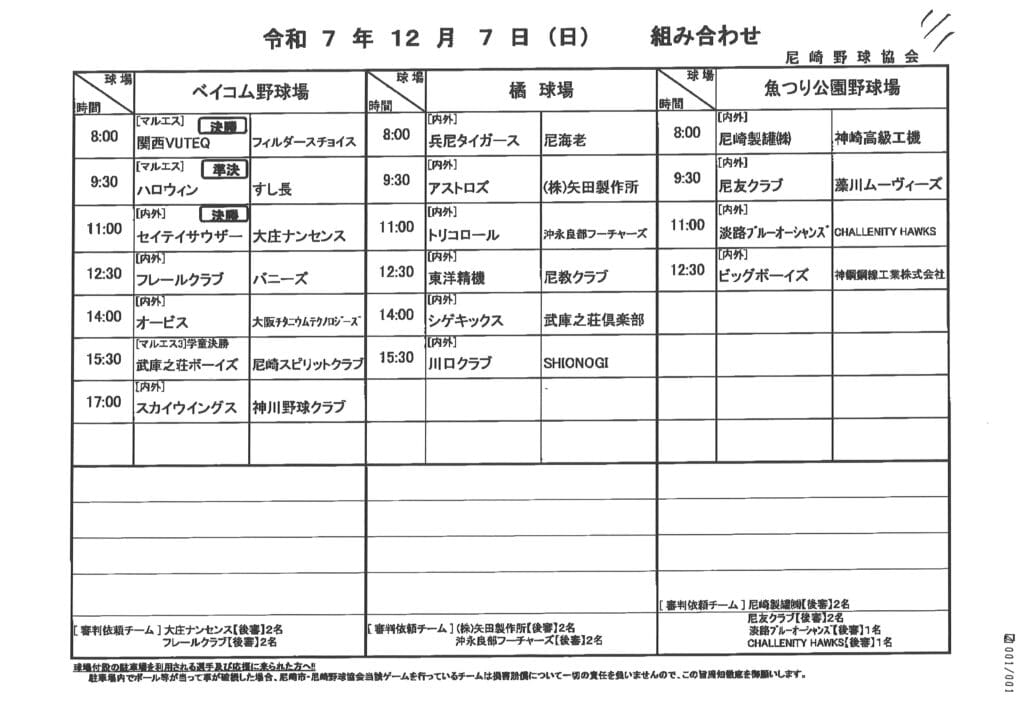 令和 7 年 12 月 7 日（日） 組み合わせ
尼崎野球協会
球場 時間 ベイコム野球場 球場 時間 橘 球場 球場 時間 魚つり公園野球場
8:00 [マルエス] 決勝 関西VUTEQ フィルダースチョイス
9:30 [マルエス] 準決 ハロウィン すし長
11:00 [内外] 決勝 セイテイサウザー 大庄ナンセンス
12:30 [内外] フレールクラブ バニーズ
14:00 [内外] オービス 大阪ﾁﾀﾆｳﾑﾃｸﾉﾛｼﾞｰｽﾞ
15:30 [マルエス3]学童決勝 武庫之荘ボーイズ 尼崎スピリットクラブ
17:00 [内外] スカイウイングス 神川野球クラブ
8:00 [内外] 兵尼タイガース 尼海老
9:30 [内外] アストロズ (株)矢田製作所
11:00 [内外] トリコロール 沖永良部フーチャーズ
12:30 [内外] 東洋精機 尼教クラブ
14:00 [内外] シゲキックス 武庫之荘倶楽部
15:30 [内外] 川口クラブ SHIONOGI
8:00 [内外] 尼崎製罐㈱ 神崎高級工機
9:30 [内外] 尼友クラブ 藻川ムーヴィーズ
11:00 [内外] 淡路ﾌﾞﾙｰオーシャンズ CHALLENITY HAWKS
12:30 [内外] ビッグボーイズ 神鋼鋼線工業株式会社
[ 審判依頼チーム ] 大庄ナンセンス【後審】2名
フレールクラブ【後審】2名
[ 審判依頼チーム ] (株)矢田製作所【後審】2名
沖永良部フーチャーズ【後審】2名
[ 審判依頼チーム ] 尼崎製罐㈱【後審】2名
尼友クラブ【後審】2名
淡路ﾌﾞﾙｰオーシャンズ【後審】1名
CHALLENITY HAWKS【後審】1名
球場付設の駐車場を利用される選手及び応援に来られた方へ!!
駐車場内でボール等が当って車が破損した場合、尼崎市・尼崎野球協会当該ゲームを行っているチームは損害賠償について一切の責任を負いませんので、この旨周知徹底を御願いします。
001/001